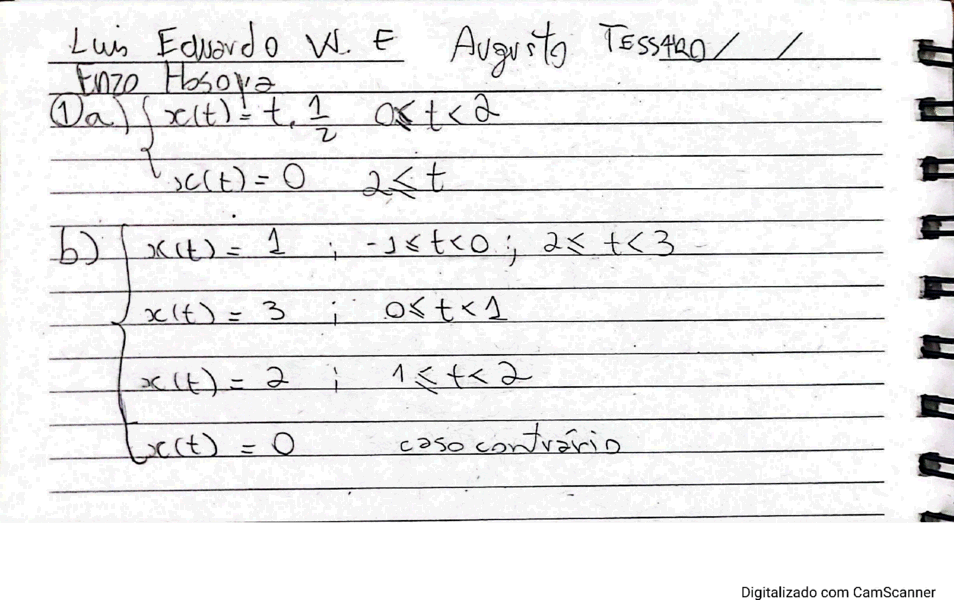 Luis Eduardo W. E Augusto TESSARO / /
Enzo
1)a) { x(t) = t . 1/2 0 ≤ t < 2
x(t) = 0 2 ≤ t
b) { x(t) = 1 ; -1 ≤ t < 0 ; 2 ≤ t < 3
x(t) = 3 ; 0 ≤ t < 1
x(t) = 2 ; 1 ≤ t < 2
x(t) = 0 caso contrário
Digitalizado com CamScanner